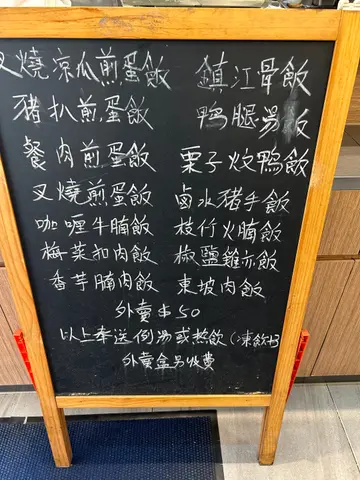 叉燒涼瓜煎蛋飯
豬扒煎蛋飯
餐肉煎蛋飯
叉燒煎蛋飯
咖喱牛腩飯
梅菜扣肉飯
香芋腩肉飯
鎮江骨飯
鴨腿湯飯
栗子炆鴨飯
鹵水豬手飯
枝竹火腩飯
椒鹽雞亦飯
東坡肉飯
外賣$50
以上奉送例湯或热飲(凍飲
外賣盒另收費